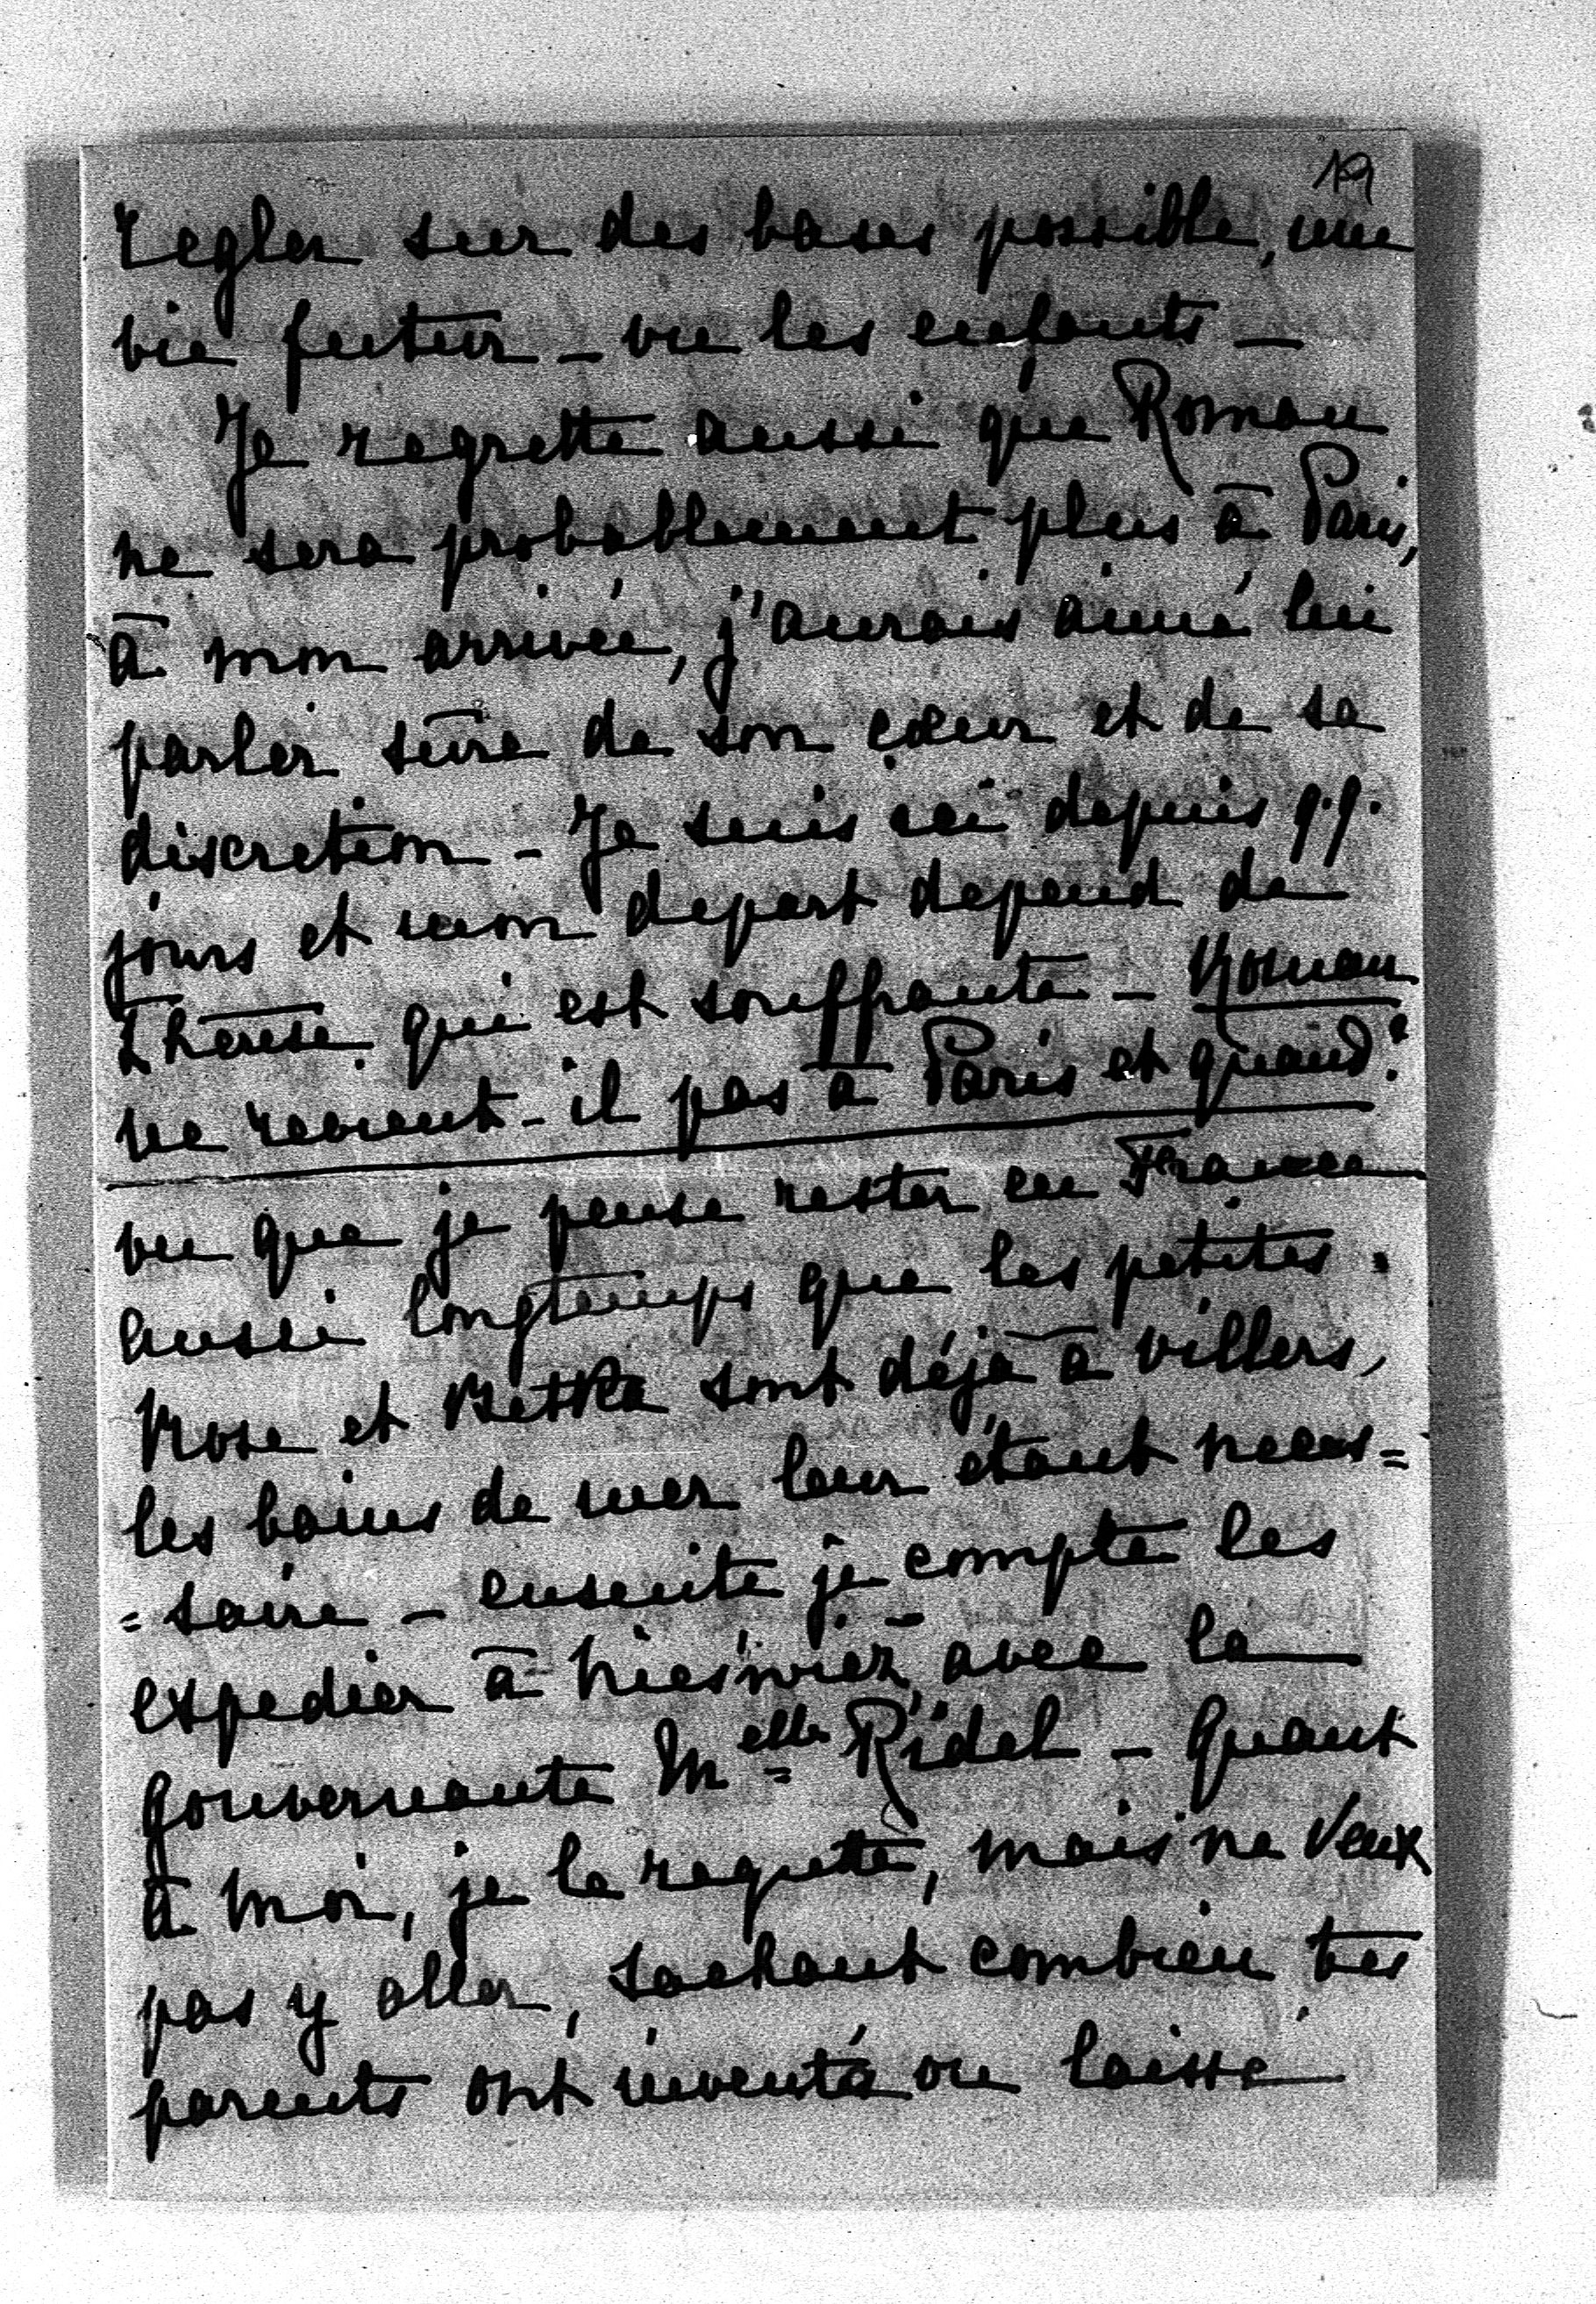 19
regler sur des bases possible, une
vie futur – vu les enfants –
Je regrette aussi que Roman
ne sera probablement plus à Paris,
à mon arrivée, j'aurais aimé lui
parler sûre de son cœur et de sa
discretion – Je suis ici depuis q.q.
jours et mon depart depend de
Thérèse qui est souffrante – Roman
ne revient-il pas à Paris et quand?
vu que je pense rester en France
aussi longtemps que les petites.
Rose et Betka sont déjà à Villers,
les bains de mer leur étant neces=
=saire – ensuite je compte les
expedier à Nieśwież avec la
gouvernante Melle Ridel – Quant
à moi, je le regrette, mais ne veux
pas y aller, sachant combien tes
parents ont inventé ou laissé